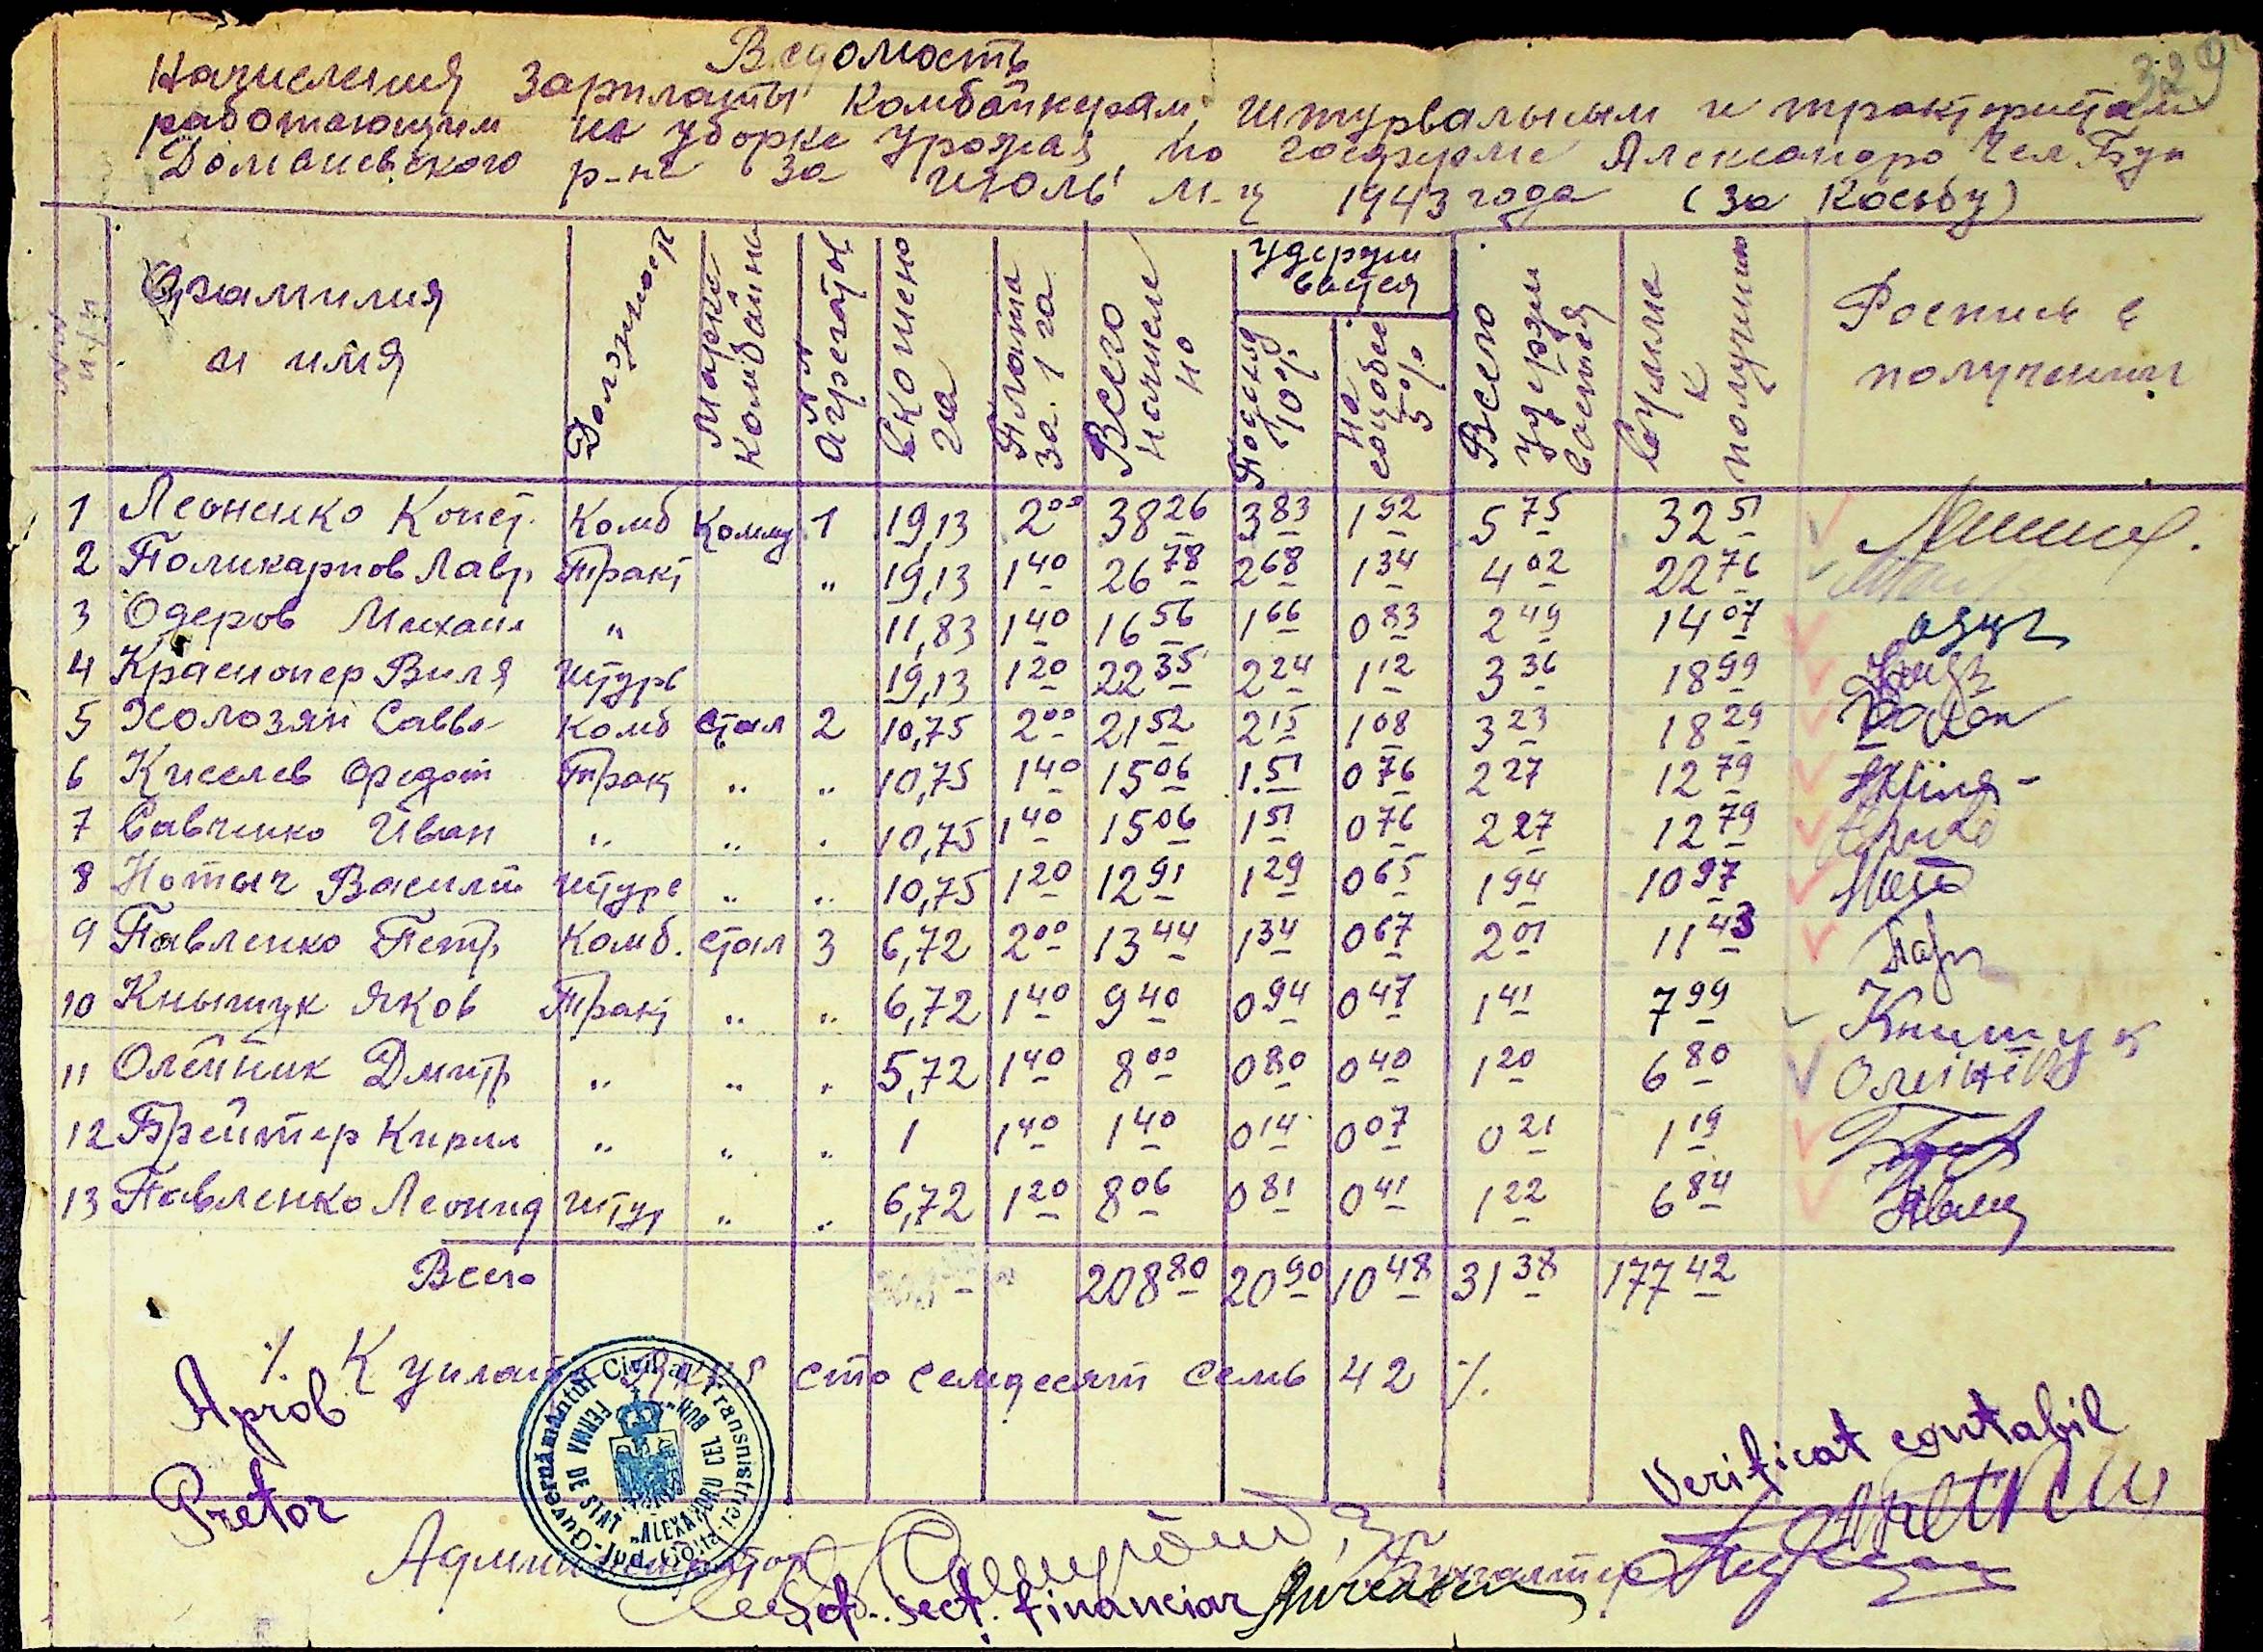 329
Ведомость
Начисления Зарплаты Комбайнерам, штурвальным и трактористам
работающим на уборке урожая, по госферме Александро Чел Бун
Доманевского р-на за июль м-ц 1943 года (за Косьбу)
№№ п/п Фамилия и имя Должност Марка Комбайна №№ Агрегатов Скошено га Плата за 1 га Всего начислено Удерживается Подоход 10% на соцобес 5% Всего удерживается Сумма к получению Роспись в получении
1 Леоненко Конст. Комб Комму 1 19,13 2 00 38 26 3 83 1 92 5 75 32 51
2 Поликарпов Лавр Тракт " 19,13 1 40 26 78 2 68 1 34 4 02 22 76
3 Одеров Михаил " 11,83 1 40 16 56 1 66 0 83 2 49 14 07
4 Краснопер Виля штурв 19,13 1 20 22 35 2 24 1 12 3 36 18 99
5 Холозян Савва Комб Стал 2 10,75 2 00 21 52 2 15 1 08 3 23 18 29
6 Киселев Федот Трак " " 10,75 1 40 15 06 1.51 0 76 2 27 12 79
7 Савченко Иван " " " 10,75 1 40 15 06 1 51 0 76 2 27 12 79
8 Нотыч Василий штурв " " 10,75 1 20 12 91 1 29 0 65 1 94 10 97
9 Павленко Петр Комб. Стал 3 6,72 2 00 13 44 1 34 0 67 2 01 11 43
10 Кнышук Яков Тракт " " 6,72 1 40 9 40 0 94 0 47 1 41 7 99 Книшук
11 Олейник Дмитр " " " 5,72 1 40 8 00 0 80 0 40 1 20 6 80 Олінік
12 Брейтер Кирил " " " 1 1 40 1 40 0 14 0 07 0 21 1 19
13 Павленко Леонид штур " " 6,72 1 20 8 06 0 81 0 41 1 22 6 84
Всего 208 80 20 90 10 48 31 38 177 42
%. К уплате сто семдесят семь 42 %.
Aprob
Pretor
Guvernământul Civil al Transnistriei
Jud. Golta
FERMA DE STAT „ALEXANDRU CEL BUN”
Verificat contabil
Администратор
Бухгалтер
Șef. sect. financiar